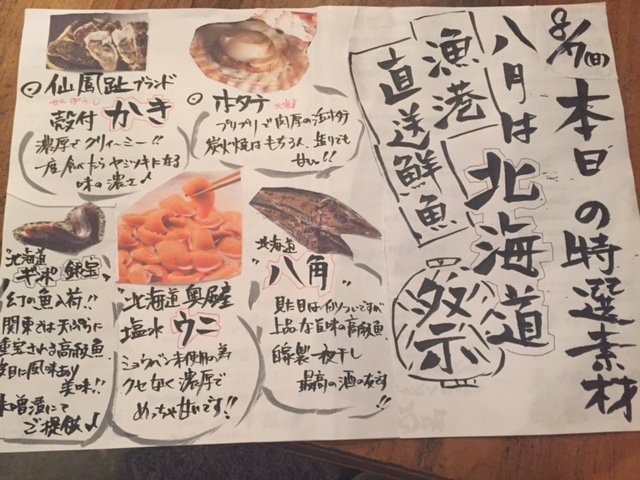 8/7(日)本日の特選素材
八月は北海道
漁港
直送鮮魚
祭
仙鳳趾ブランド
せんぽうし
殻付かき
濃厚でクリィーミー!!
一度食べたらヤミツキになる
味の濃さ♪
ホタテ
プリプリで肉厚の活ホタテ
炭火焼はもちろん、造りでも
甘い!!
"北海道
ギンポ"銀宝"
幻の魚入荷!!
関東では天ぷらに
重宝される高級魚
美味!!
味噌漬にて
ご提供♪
"北海道奥尻産
塩水ウニ"
ミョウバン未使用の為
クセなく濃厚で
めっちゃ甘いです!!
"北海道
八角"
見た目はイカツいですが
上品な旨味の高級魚
自家製一夜干し
最高の酒の友です
!!